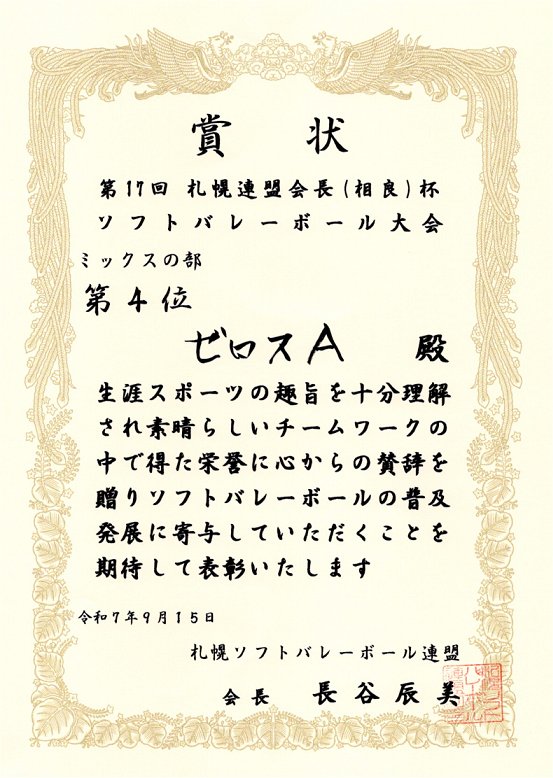 賞状
第17回 札幌連盟会長(相良)杯
ソフトバレーボール大会
ミックスの部
第4位
ゼロスA 殿
生涯スポーツの趣旨を十分理解
され素晴らしいチームワークの
中で得た栄誉に心からの賛辞を
贈りソフトバレーボールの普及
発展に寄与していただくことを
期待して表彰いたします
令和7年9月15日
札幌ソフトバレーボール連盟
会長 長谷辰美